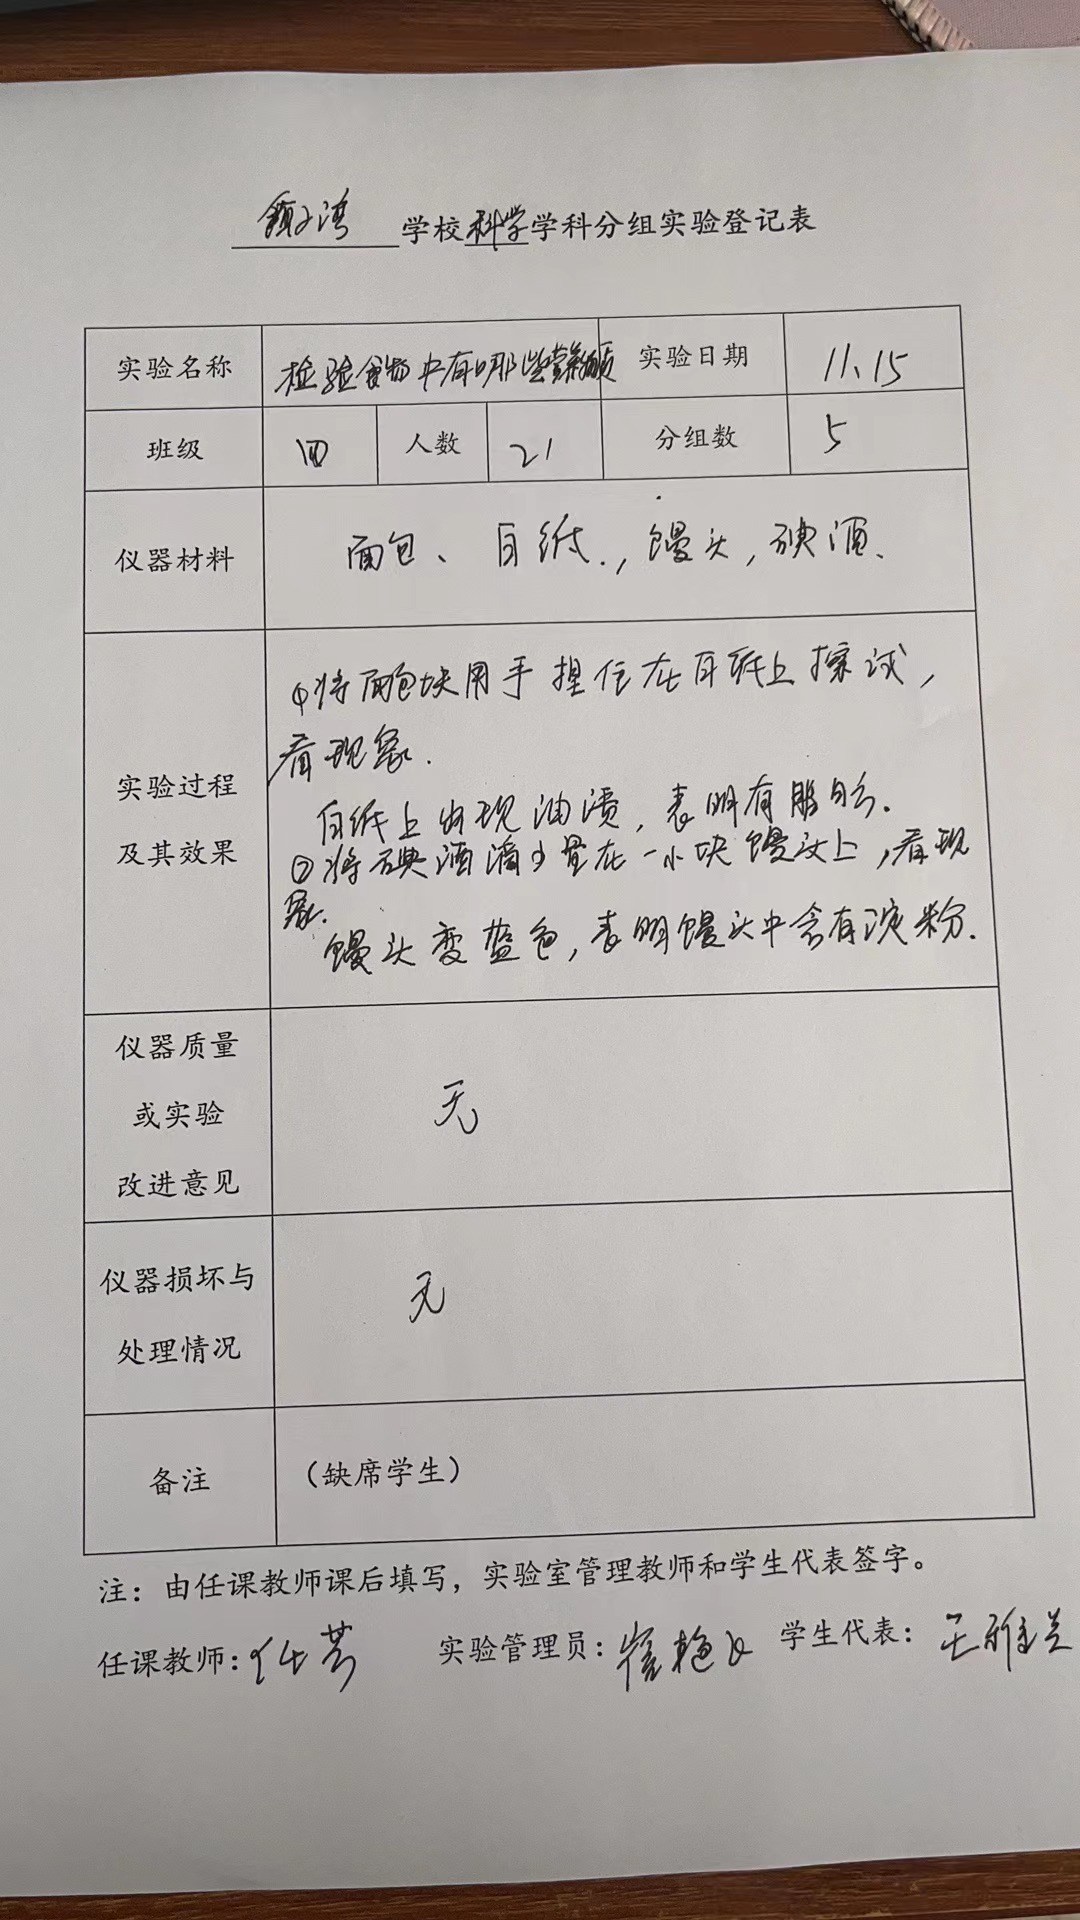 学校科学学科分组实验登记表
实验名称 检验食物中有哪些营养 实验日期 11.15
班级 四 人数 21 分组数 5
仪器材料 面包、白纸.,馒头,碘酒、
①将面包块用手捏住在白纸上擦试,
看现象.
实验过程
白纸上出现油渍,表明有脂肪.
及其效果
②将碘酒滴少量在一小块馒头上,看现
象.
馒头变蓝色,表明馒头中含有淀粉.
仪器质量
或实验
改进意见
无
仪器损坏与
处理情况
无
备注 (缺席学生)
注:由任课教师课后填写,实验室管理教师和学生代表签字。
任课教师:任芳 实验管理员: 学生代表:王雅兰